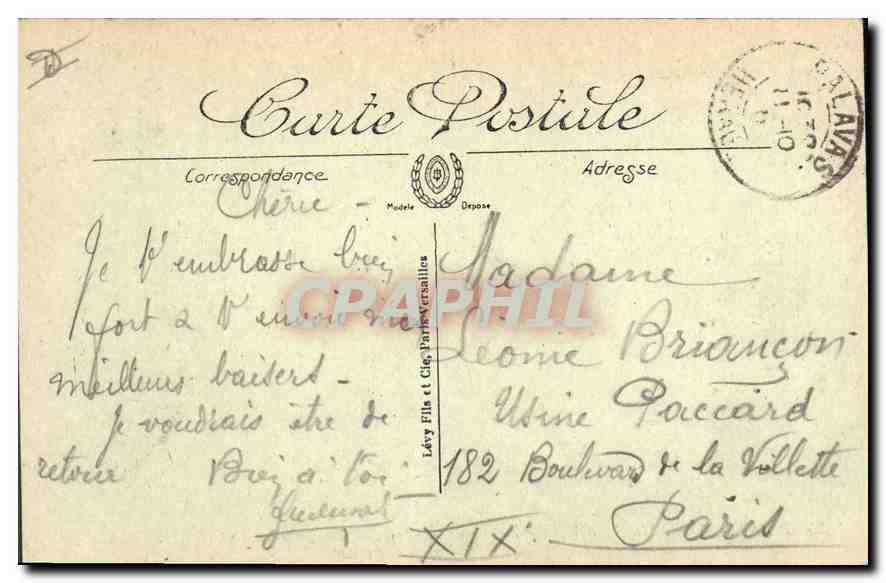 Carte Postale
Correspondance
Adresse
Modèle Déposé
PALAVAS
HERAULT
Lévy Fils et Cie, Paris-Versailles
CPAPHIL
Chérie -
Je t'embrasse bien
fort & t'envoie mes
meilleurs baisers -
Je voudrais être de
retour Bien à toi
Madame
Léonie Briançon
Usine Paccard
182 Boulevard de la Villette
Paris
XIX